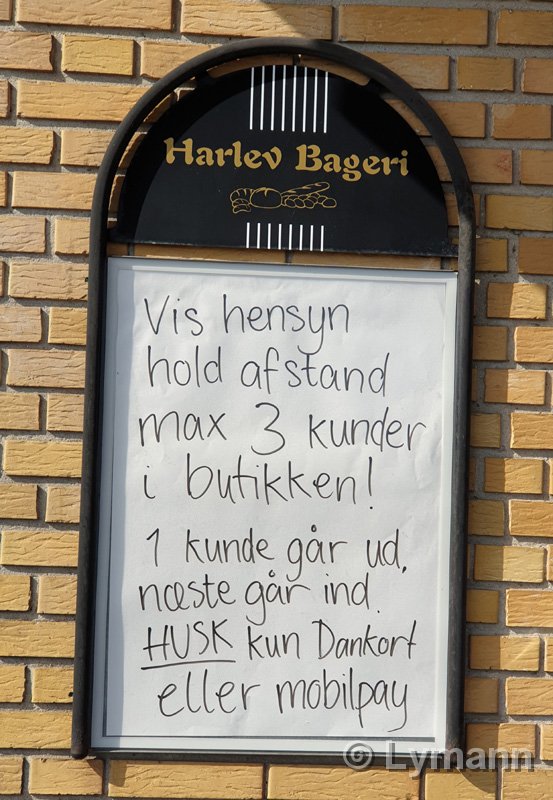 Harlev Bageri
Vis hensyn
hold afstand
max 3 kunder
i butikken!
1 kunde går ud,
næste går ind.
HUSK kun Dankort
eller mobilpay
© Lymann